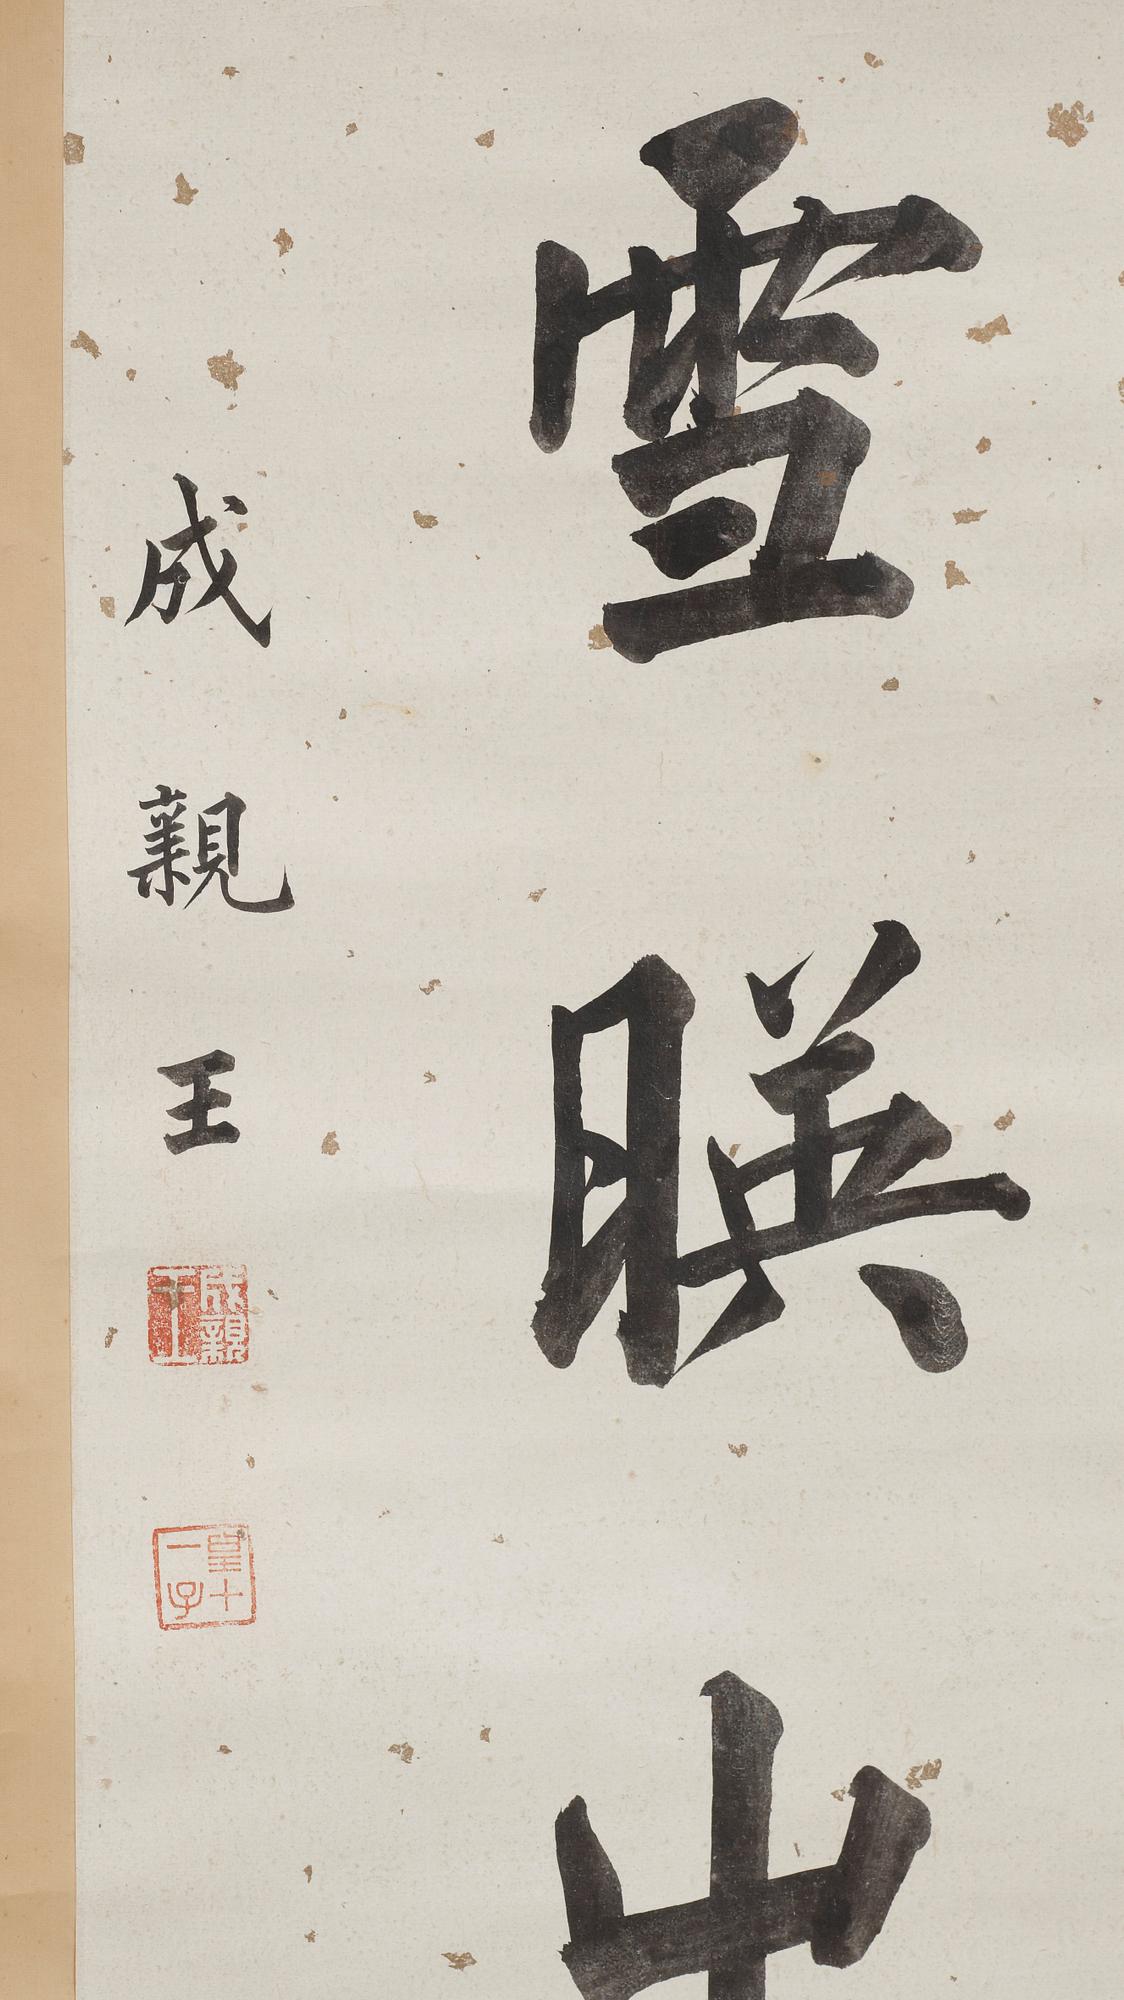 雪暎出
成親王
成親王
皇十一子